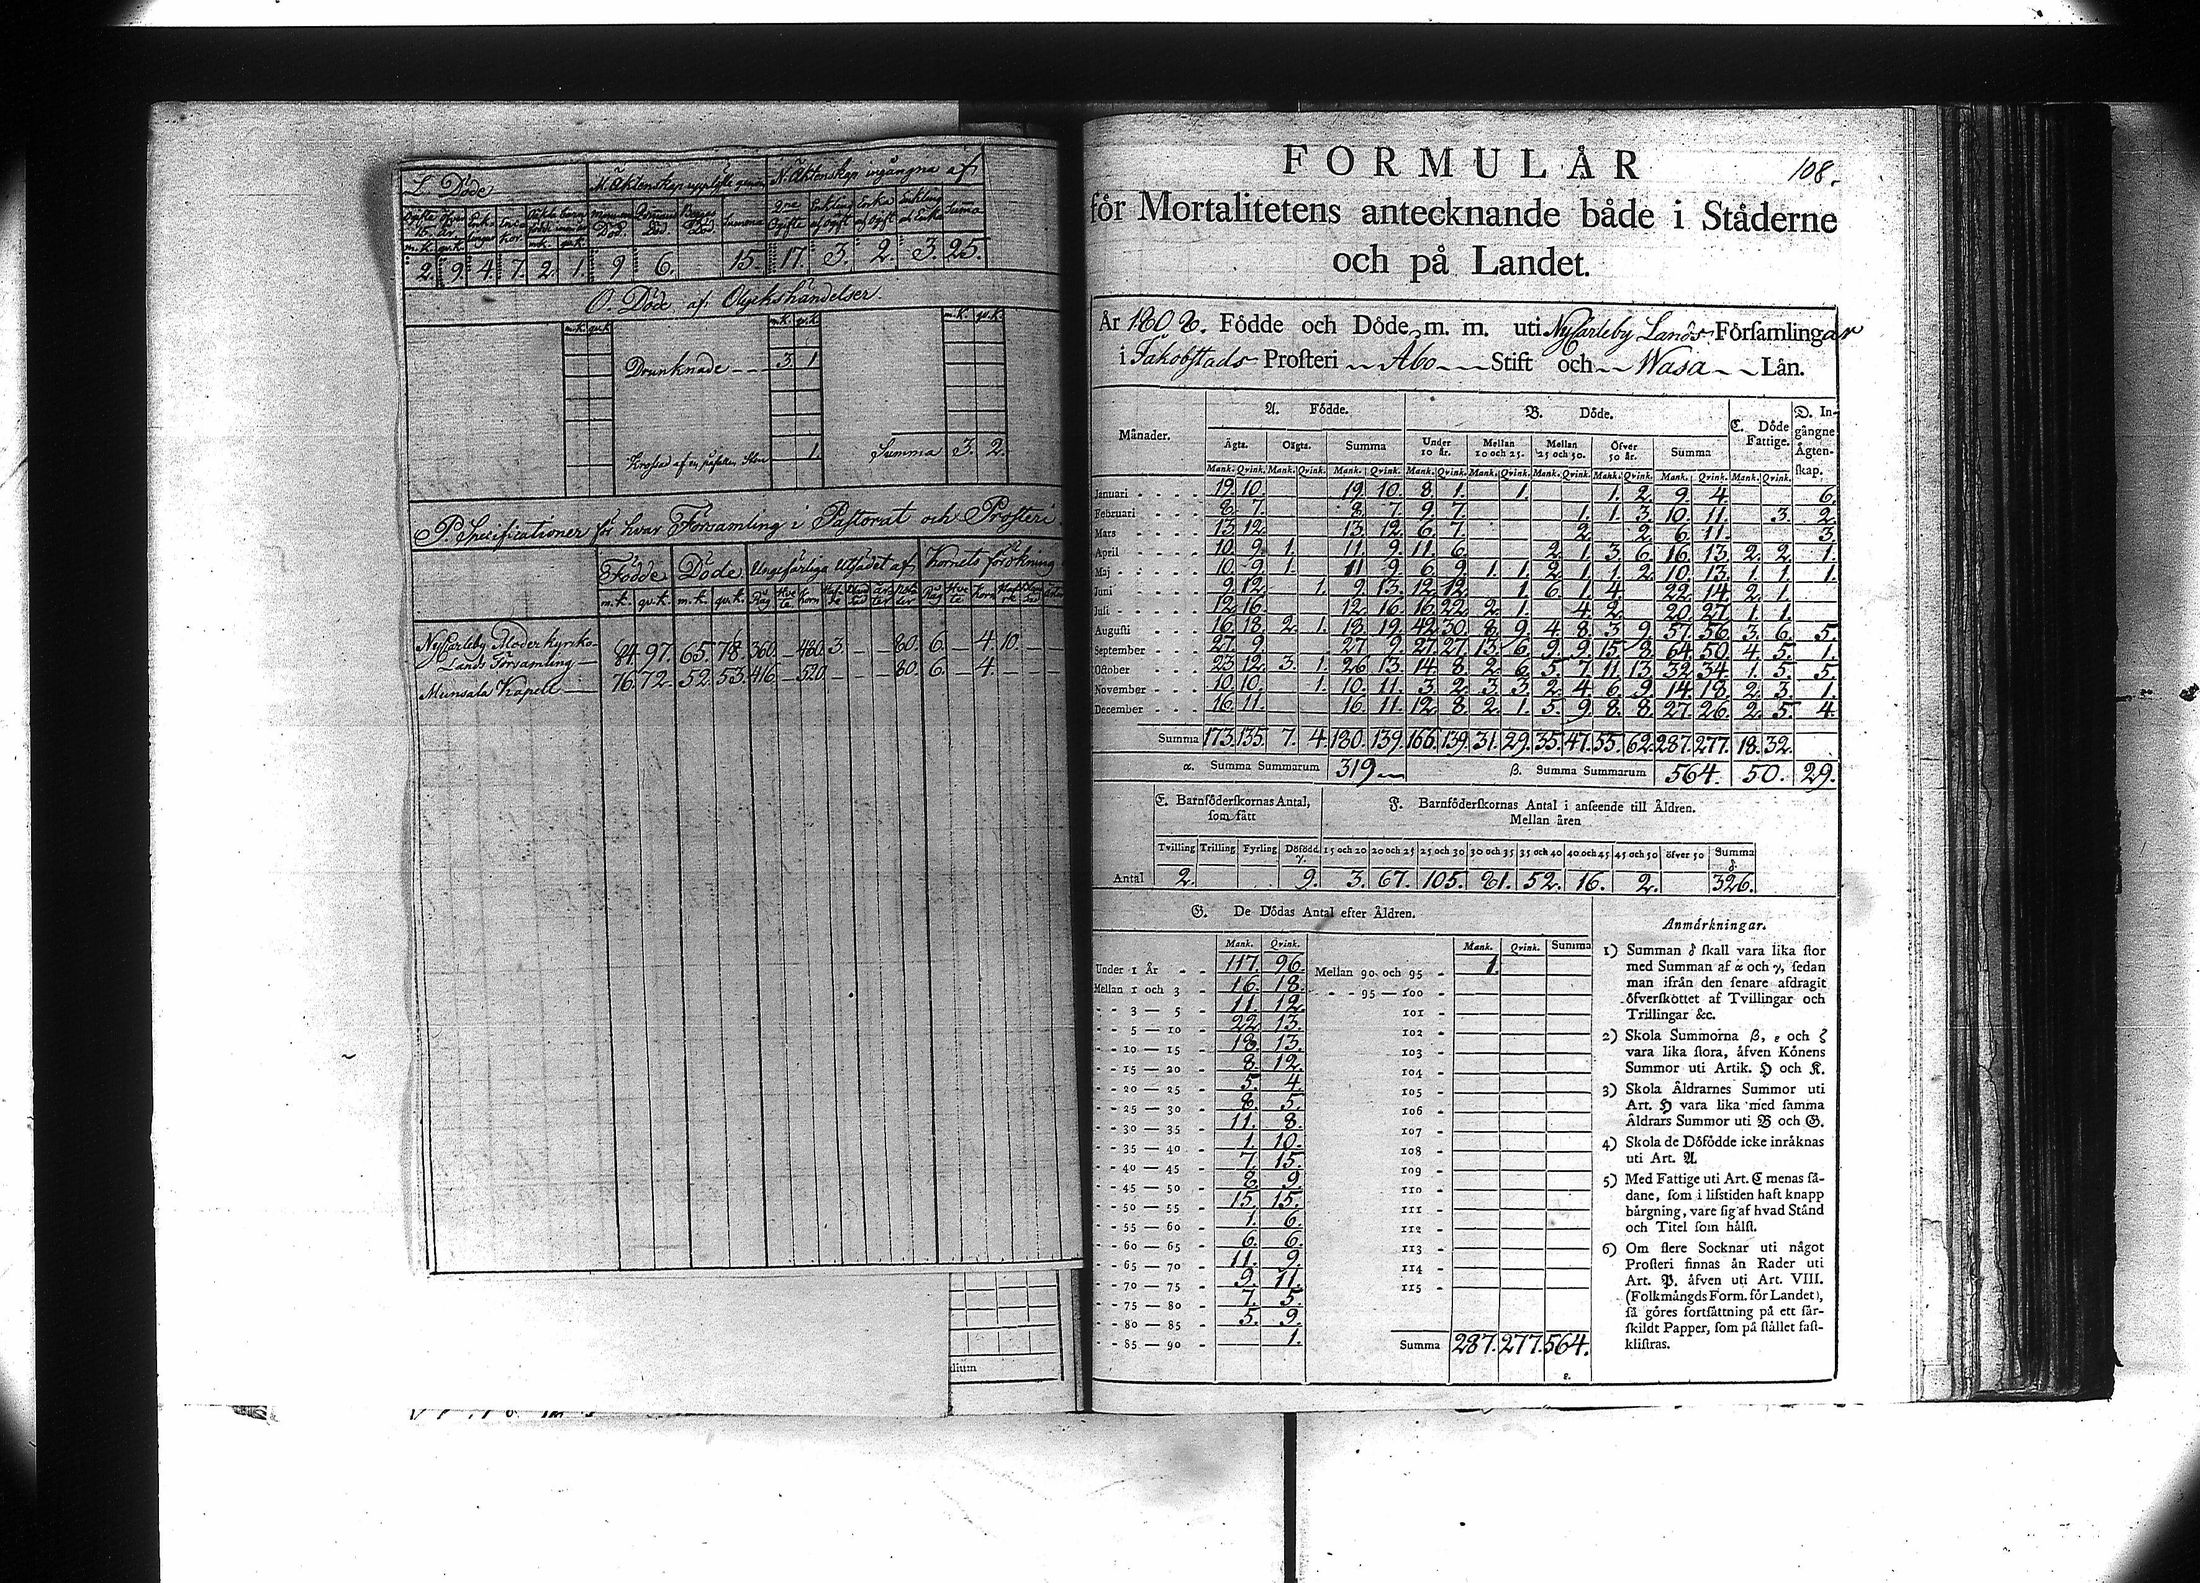 L. Döde
M. Äktenskap upplöste genom
N. Äktenskap ingångne af
m.k. qv.k.
Summa
2. 9. 4. 7. 2. 1. 9 6. 15. 17. 3. 2. 3. 25.
O. Döde af Olyckshändelser.
m.k. qv.k. m.k. qv.k. m.k. qv.k.
Drunknade - - - 3. 1
1. Summa 3. 2.
P. Specificationer för hvar Församling i Pastorat och Prosteri
Födde Döde Ungefärliga Utsädet af Kornets förökning
m.k. qv.k. m.k. qv.k.
NyCarleby Moderkyrko-
Lands Församling — 84. 97. 65. 78. 360 — 480. 3. — — 80. 6. — 4. 10. — —
Munsala Kapell — 76. 72. 52. 53. 416 — 520. — — — 80. 6. — 4. — — —
lium
FORMULÅR 108.
för Mortalitetens antecknande både i Ståderne
och på Landet.
År 1808. Födde och Döde m. m. uti NyCarleby Lands Förſamlingar
i Jakobſtads Proſteri Åbo Stift och Wasa Lån.
Månader. A. Födde. B. Döde. C. Döde Fattige. D. Ingångne Ågtenſkap.
Ågta. Oågta. Summa Under 10 år. Mellan 10 och 25. Mellan 25 och 50. Öfver 50 år. Summa
Mank. Qvink. Mank. Qvink. Mank. Qvink. Mank. Qvink. Mank. Qvink. Mank. Qvink. Mank. Qvink. Mank. Qvink. Mank. Qvink.
Januari 19. 10. 19. 10. 8. 1. 1. 1. 2. 9. 4. 6.
Februari 8. 7. 8. 7. 9. 7. 1. 1. 3. 10. 11. 3. 2.
Mars 13. 12. 13. 12. 6. 7. 2. 2. 6. 11. 3.
April 10. 9. 1. 11. 9. 11. 6. 2. 1. 3. 6. 16. 13. 2. 2. 1.
Maj 10. 9. 1. 11 9. 6. 9. 1. 1. 2. 1. 1. 2. 10. 13. 1. 1. 1.
Juni 9. 12. 1. 9. 13. 12. 12. 1. 6. 1. 4. 22. 14. 2. 1.
Juli 12. 16. 12. 16. 16. 22. 2. 1. 4. 2. 20. 27. 1. 1.
Auguſti 16. 18. 2. 1. 18. 19. 42. 30. 8. 9. 4. 8. 3. 9. 57. 56. 3. 6. 5.
September 27. 9. 27. 9. 27. 27. 13. 6. 9. 9. 15. 8. 64. 50. 4. 5. 1.
October 23. 12. 3. 1. 26. 13. 14. 8. 2. 6. 5. 7. 11. 13. 32. 34. 1. 5. 5.
November 10. 10. 1. 10. 11. 3. 2. 3. 3. 2. 4. 6. 9. 14. 18. 2. 3. 1.
December 16. 11. 16. 11. 12. 8. 2. 1. 5. 9. 8. 8. 27. 26. 2. 5. 4.
Summa 173. 135. 7. 4. 180. 139. 166. 139. 31. 29. 35. 47. 55. 62. 287. 277. 18. 32.
α. Summa Summarum 319 β. Summa Summarum 564. 50. 29.
E. Barnföderſkornas Antal, ſom fått
F. Barnföderſkornas Antal i anſeende till Åldren.
Mellan åren
Tvilling Trilling Fyrling Dödfödd γ. 15 och 20 20 och 25 25 och 30 30 och 35 35 och 40 40 och 45 45 och 50 öfver 50 Summa δ
Antal 2. 9. 3. 67. 105. 81. 52. 16. 2. 326.
G. De Dödas Antal efter Åldren.
Mank. Qvink. Mank. Qvink. Summa
Under 1 År - - 117. 96. Mellan 90 och 95 - 1.
Mellan 1 och 3 - 16. 18. - - 95 — 100 -
- - 3 — 5 - 11. 12. 101 -
- - 5 — 10 - 22. 13. 102 -
- - 10 — 15 - 18. 13. 103 -
- - 15 — 20 - 8. 12. 104 -
- - 20 — 25 - 5. 4. 105 -
- - 25 — 30 - 8. 5. 106 -
- - 30 — 35 - 11. 8. 107 -
- - 35 — 40 - 1. 10. 108 -
- - 40 — 45 - 7. 15. 109 -
- - 45 — 50 - 8. 9. 110 -
- - 50 — 55 - 15. 15. 111 -
- - 55 — 60 - 1. 6. 112 -
- - 60 — 65 - 6. 6. 113 -
- - 65 — 70 - 11. 9. 114 -
- - 70 — 75 - 9. 11. 115 -
- - 75 — 80 - 7. 5.
- - 80 — 85 - 5. 9.
- - 85 — 90 - 1. Summa 287. 277. 564.
ε.
Anmårkningar.
1) Summan δ ſkall vara lika ſtor
med Summan af α och γ, ſedan
man ifrån den ſenare afdragit
öfverſkottet af Tvillingar och
Trillingar &c.
2) Skola Summorna β, ε och ζ
vara lika ſtora, åfven Könens
Summor uti Artik. H och K.
3) Skola Åldrarnes Summor uti
Art. H vara lika med ſamma
Åldrars Summor uti B och G.
4) Skola de Döfödde icke inråknas
uti Art. A
5) Med Fattige uti Art. C menas ſå-
dane, ſom i lifstiden haft knapp
bårgning, vare ſig af hvad Stånd
och Titel ſom hålſt.
6) Om flere Socknar uti något
Proſteri finnas ån Rader uti
Art. P. åfven uti Art. VIII.
(Folkmångds Form. för Landet),
ſå göres fortſåttning på ett ſår-
ſkildt Papper, ſom på ſtållet faſt-
kliſtras.